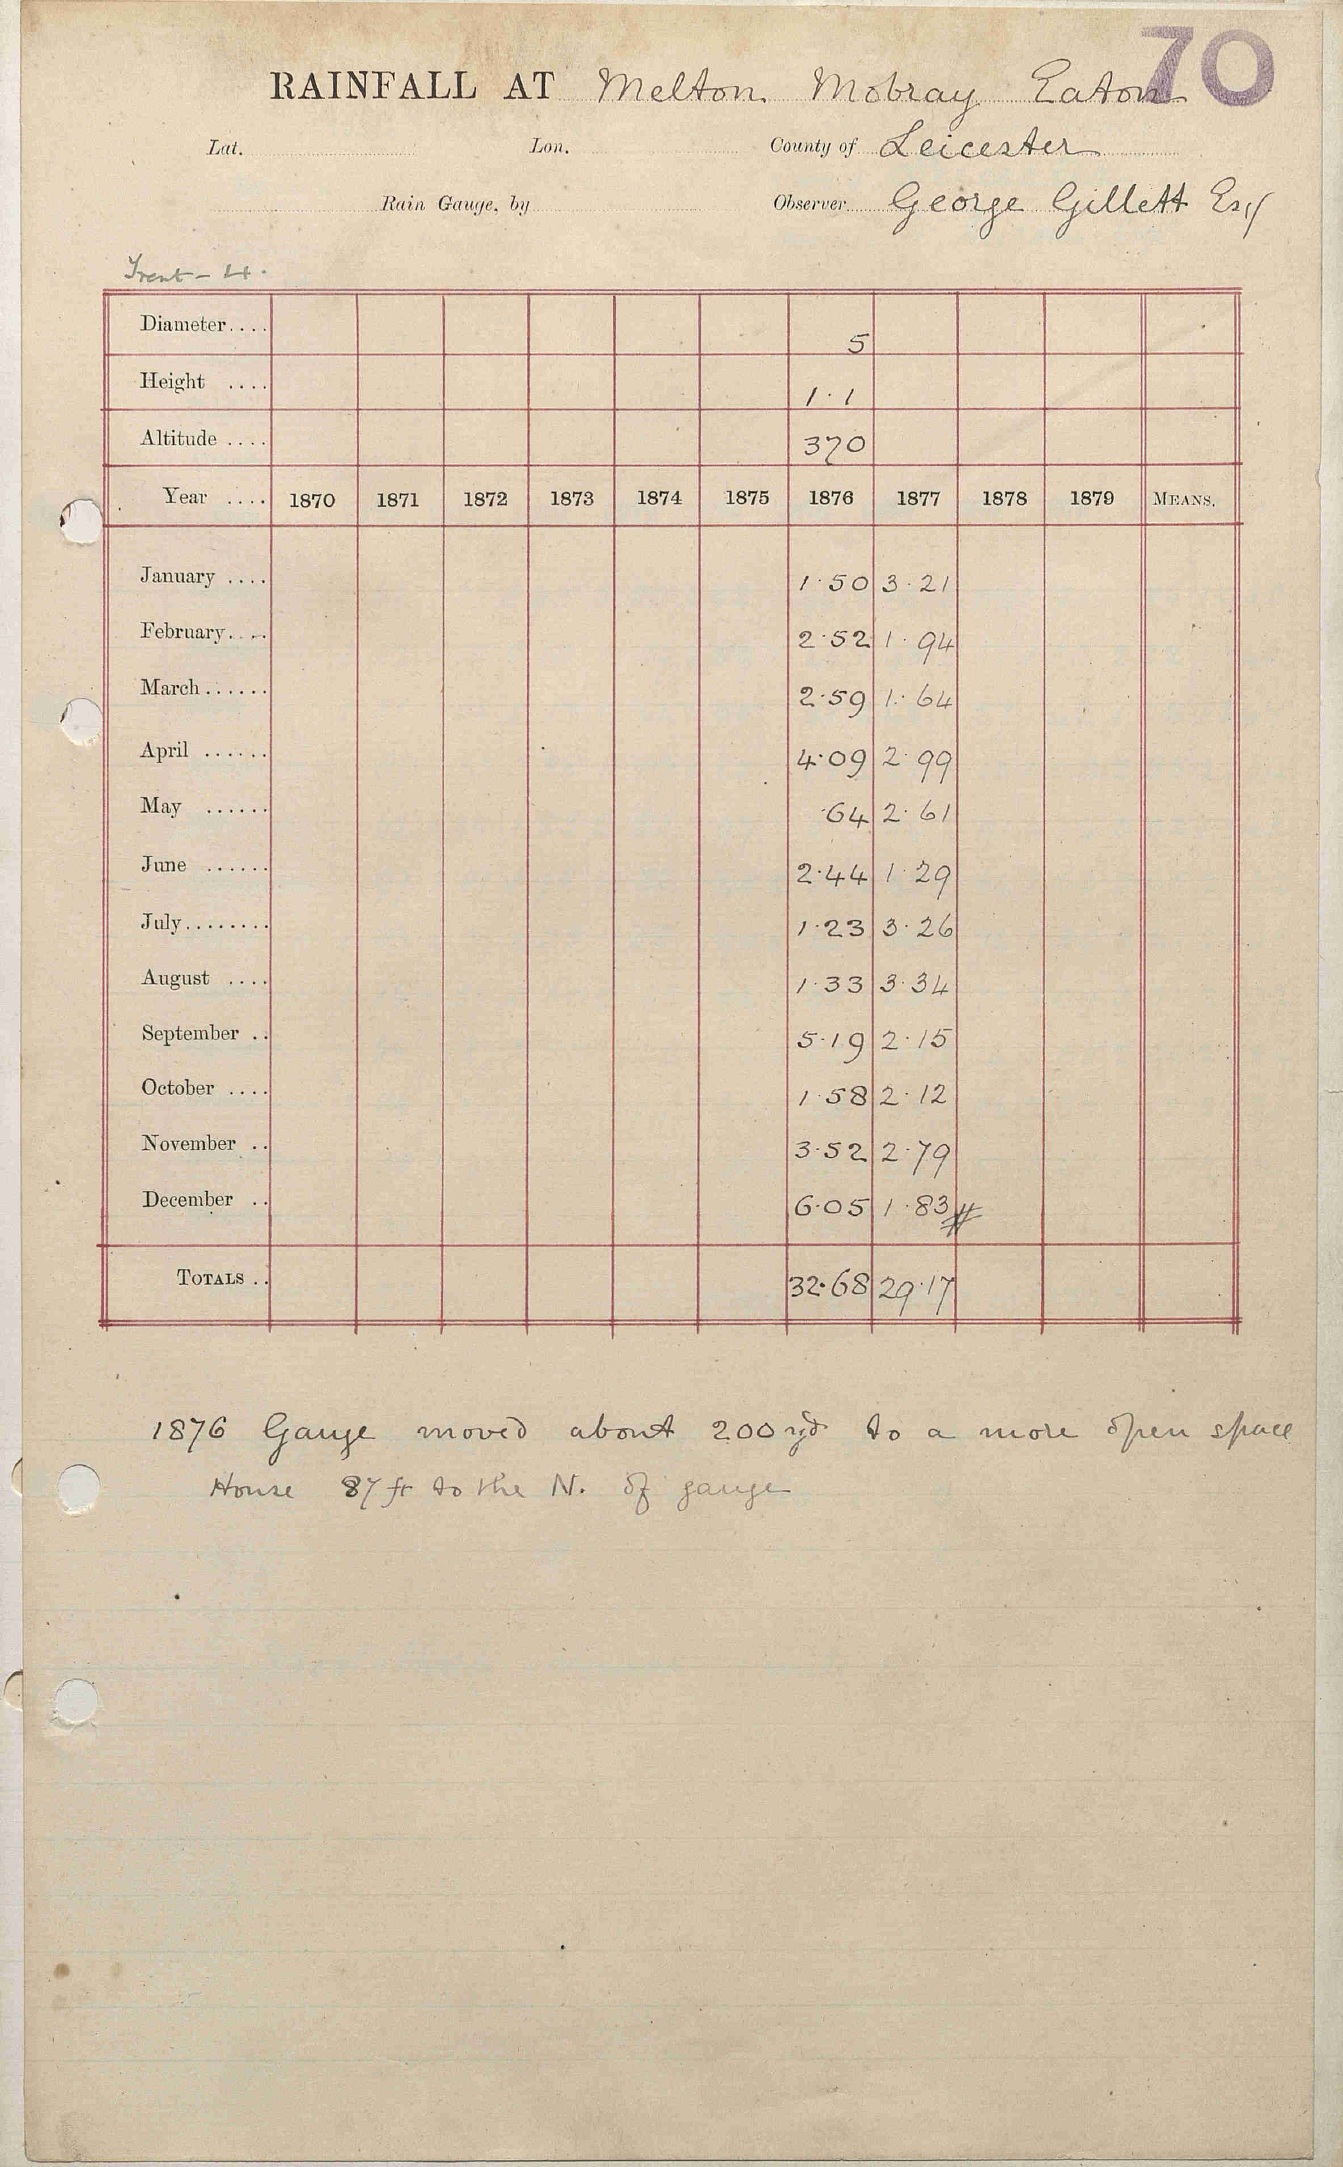 70
RAINFALL AT Melton Mobray Eaton
Lat. Lon. County of Leicester
Rain Gauge, by Observer George Gillett Esq
Trent - 4.
Diameter.... 5
Height .... 1.1
Altitude .... 370
Year .... 1870 1871 1872 1873 1874 1875 1876 1877 1878 1879 MEANS.
January .... 1.50 3.21
February.... 2.52 1.94
March...... 2.59 1.64
April ...... 4.09 2.99
May ...... .64 2.61
June ...... 2.44 1.29
July........ 1.23 3.26
August .... 1.33 3.34
September .. 5.19 2.15
October .... 1.58 2.12
November .. 3.52 2.79
December .. 6.05 1.83 #
TOTALS .. 32.68 29.17
1876 Gauge moved about 200 yd to a more open space
House 87 ft to the N. of gauge